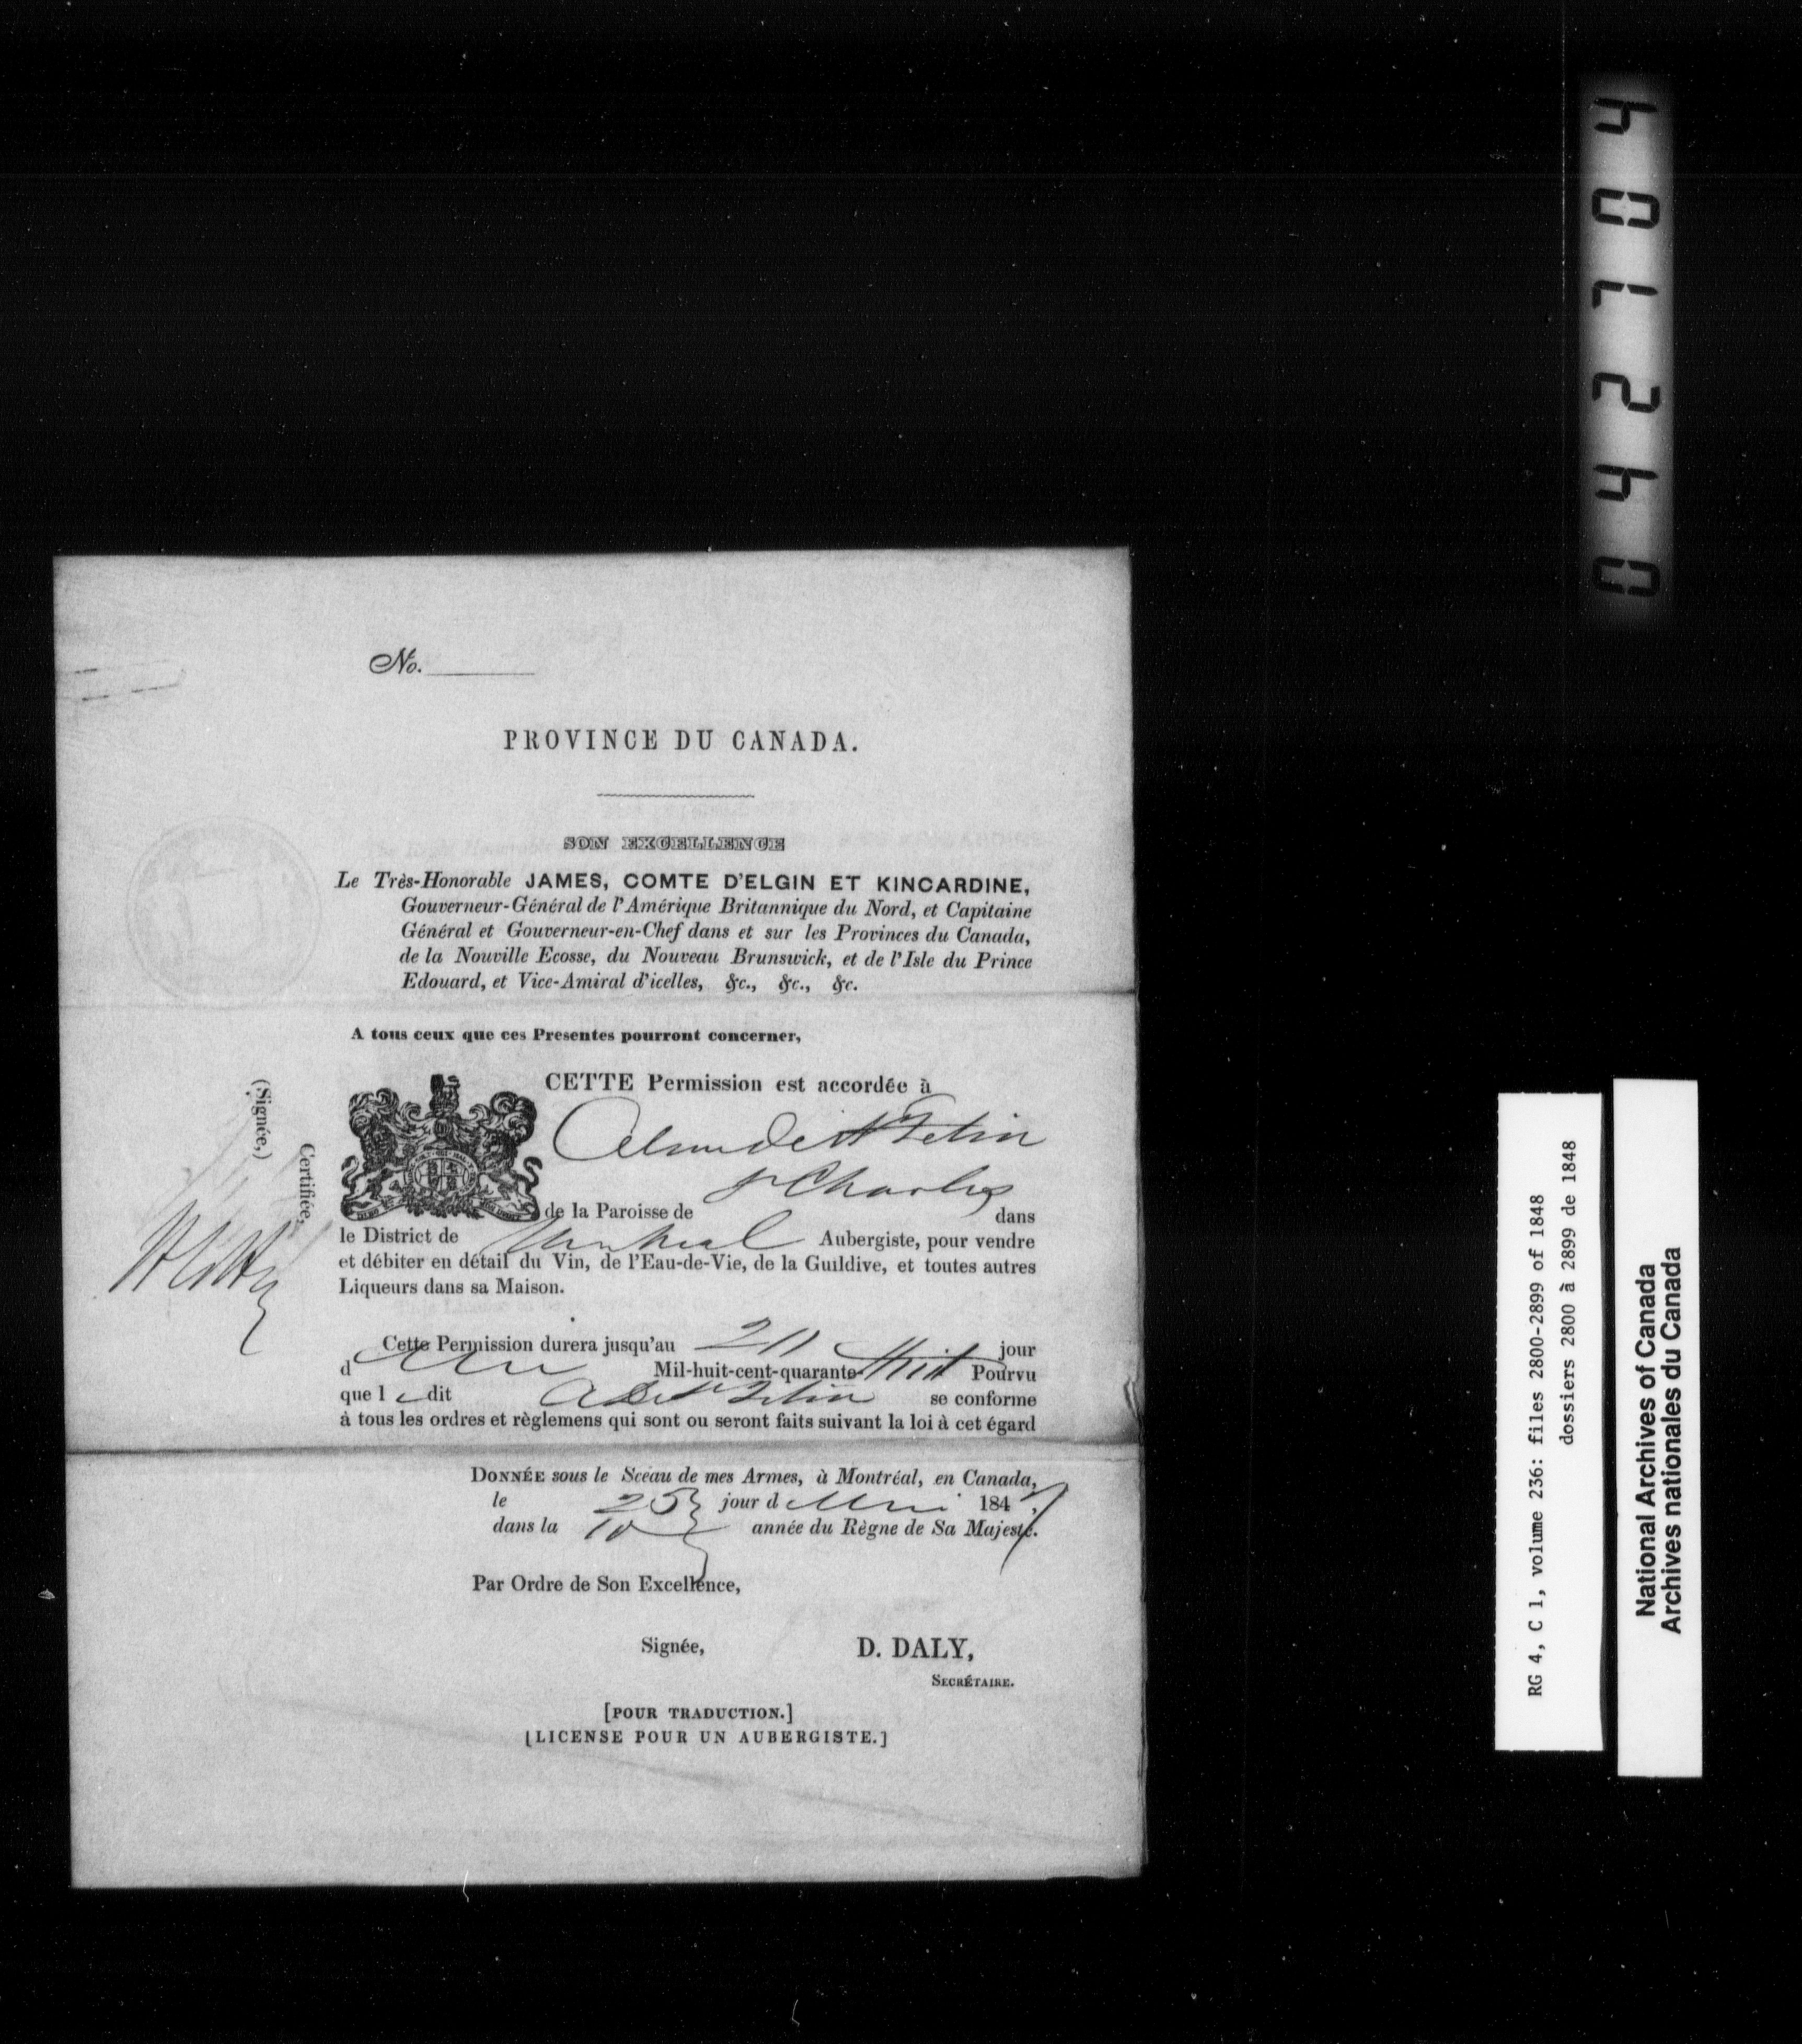 No.
PROVINCE DU CANADA.
SON EXCELLENCE
Le Très-Honorable JAMES, COMTE D'ELGIN ET KINCARDINE,
Gouverneur-Général de l'Amérique Britannique du Nord, et Capitaine
Général et Gouverneur-en-Chef dans et sur les Provinces du Canada,
de la Nouville Ecosse, du Nouveau Brunswick, et de l'Isle du Prince
Edouard, et Vice-Amiral d'icelles, &c., &c., &c.
A tous ceux que ces Presentes pourront concerner,
CETTE Permission est accordée à
St Charles
de la Paroisse de dans
le District de Montreal Aubergiste, pour vendre
et débiter en détail du Vin, de l'Eau-de-Vie, de la Guildive, et toutes autres
Liqueurs dans sa Maison.
Cette Permission durera jusqu'au jour
d Mil-huit-cent-quarante-Huit Pourvu
que le dit se conforme
à tous les ordres et règlemens qui sont ou seront faits suivant la loi à cet égard
DONNÉE sous le Sceau de mes Armes, à Montréal, en Canada,
le 25 jour de Mai 1847
dans la 10 année du Règne de Sa Majesté.
Par Ordre de Son Excellence,
Signée, D. DALY,
SECRÉTAIRE.
[POUR TRADUCTION.]
[LICENSE POUR UN AUBERGISTE.]
(Signée,)
Certifiée,
RG 4, C 1, volume 236: files 2800-2899 of 1848
dossiers 2800 à 2899 de 1848
National Archives of Canada
Archives nationales du Canada
407240